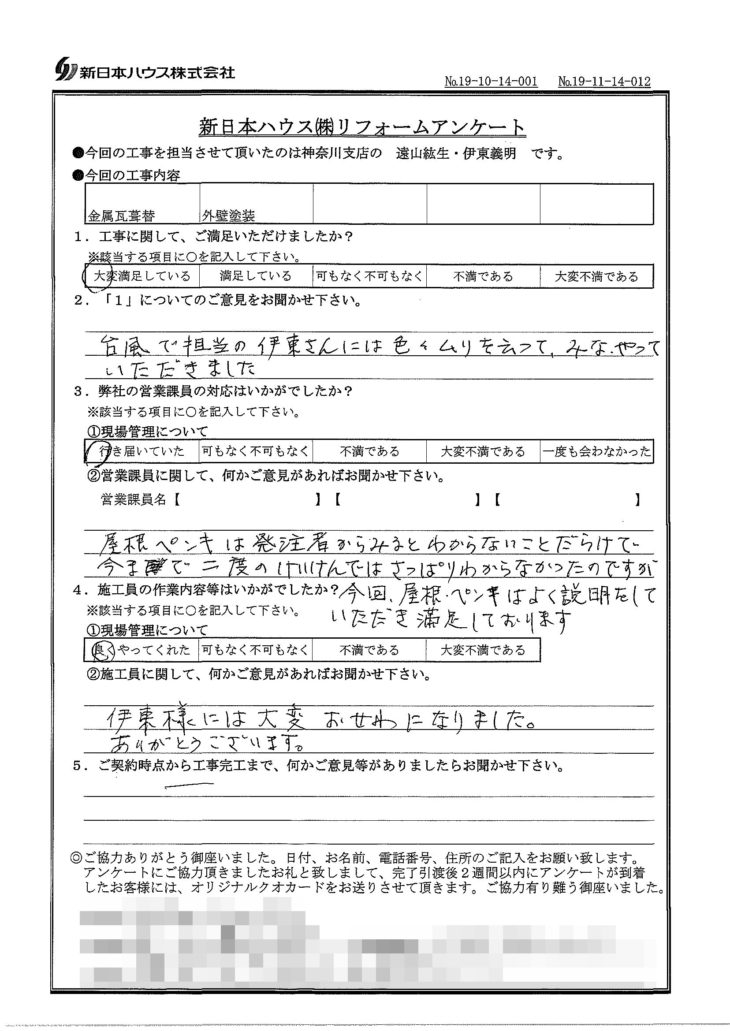 新日本ハウス株式会社
№19-10-14-001 №19-11-14-012
新日本ハウス㈱リフォームアンケート
●今回の工事を担当させて頂いたのは神奈川支店の 遠山紘生・伊東義明 です。
●今回の工事内容
金属瓦葺替 外壁塗装
1．工事に関して、ご満足いただけましたか？
※該当する項目に○を記入して下さい。
大変満足している 満足している 可もなく不可もなく 不満である 大変不満である
2．「1」についてのご意見をお聞かせ下さい。
台風で担当の伊東さんには色々ムリを云って、みなやって
いただきました
3．弊社の営業課員の対応はいかがでしたか？
※該当する項目に○を記入して下さい。
①現場管理について
行き届いていた 可もなく不可もなく 不満である 大変不満である 一度も会わなかった
②営業課員に関して、何かご意見があればお聞かせ下さい。
営業課員名【 】【 】【 】
屋根ペンキは発注者からみるとわからないことだらけで
今まで二度のけいけんではさっぱりわからなかったのですが
4．施工員の作業内容等はいかがでしたか？
今回、屋根・ペンキはよく説明をして
※該当する項目に○を記入して下さい。
いただき満足しております
①現場管理について
良くやってくれた 可もなく不可もなく 不満である 大変不満である
②施工員に関して、何かご意見があればお聞かせ下さい。
伊東様には大変おせわになりました。
ありがとうございます。
5．ご契約時点から工事完工まで、何かご意見等がありましたらお聞かせ下さい。
◎ご協力ありがとう御座いました。日付、お名前、電話番号、住所のご記入をお願い致します。
アンケートにご協力頂きましたお礼と致しまして、完了引渡後2週間以内にアンケートが到着
したお客様には、オリジナルクオカードをお送りさせて頂きます。ご協力有り難う御座いました。